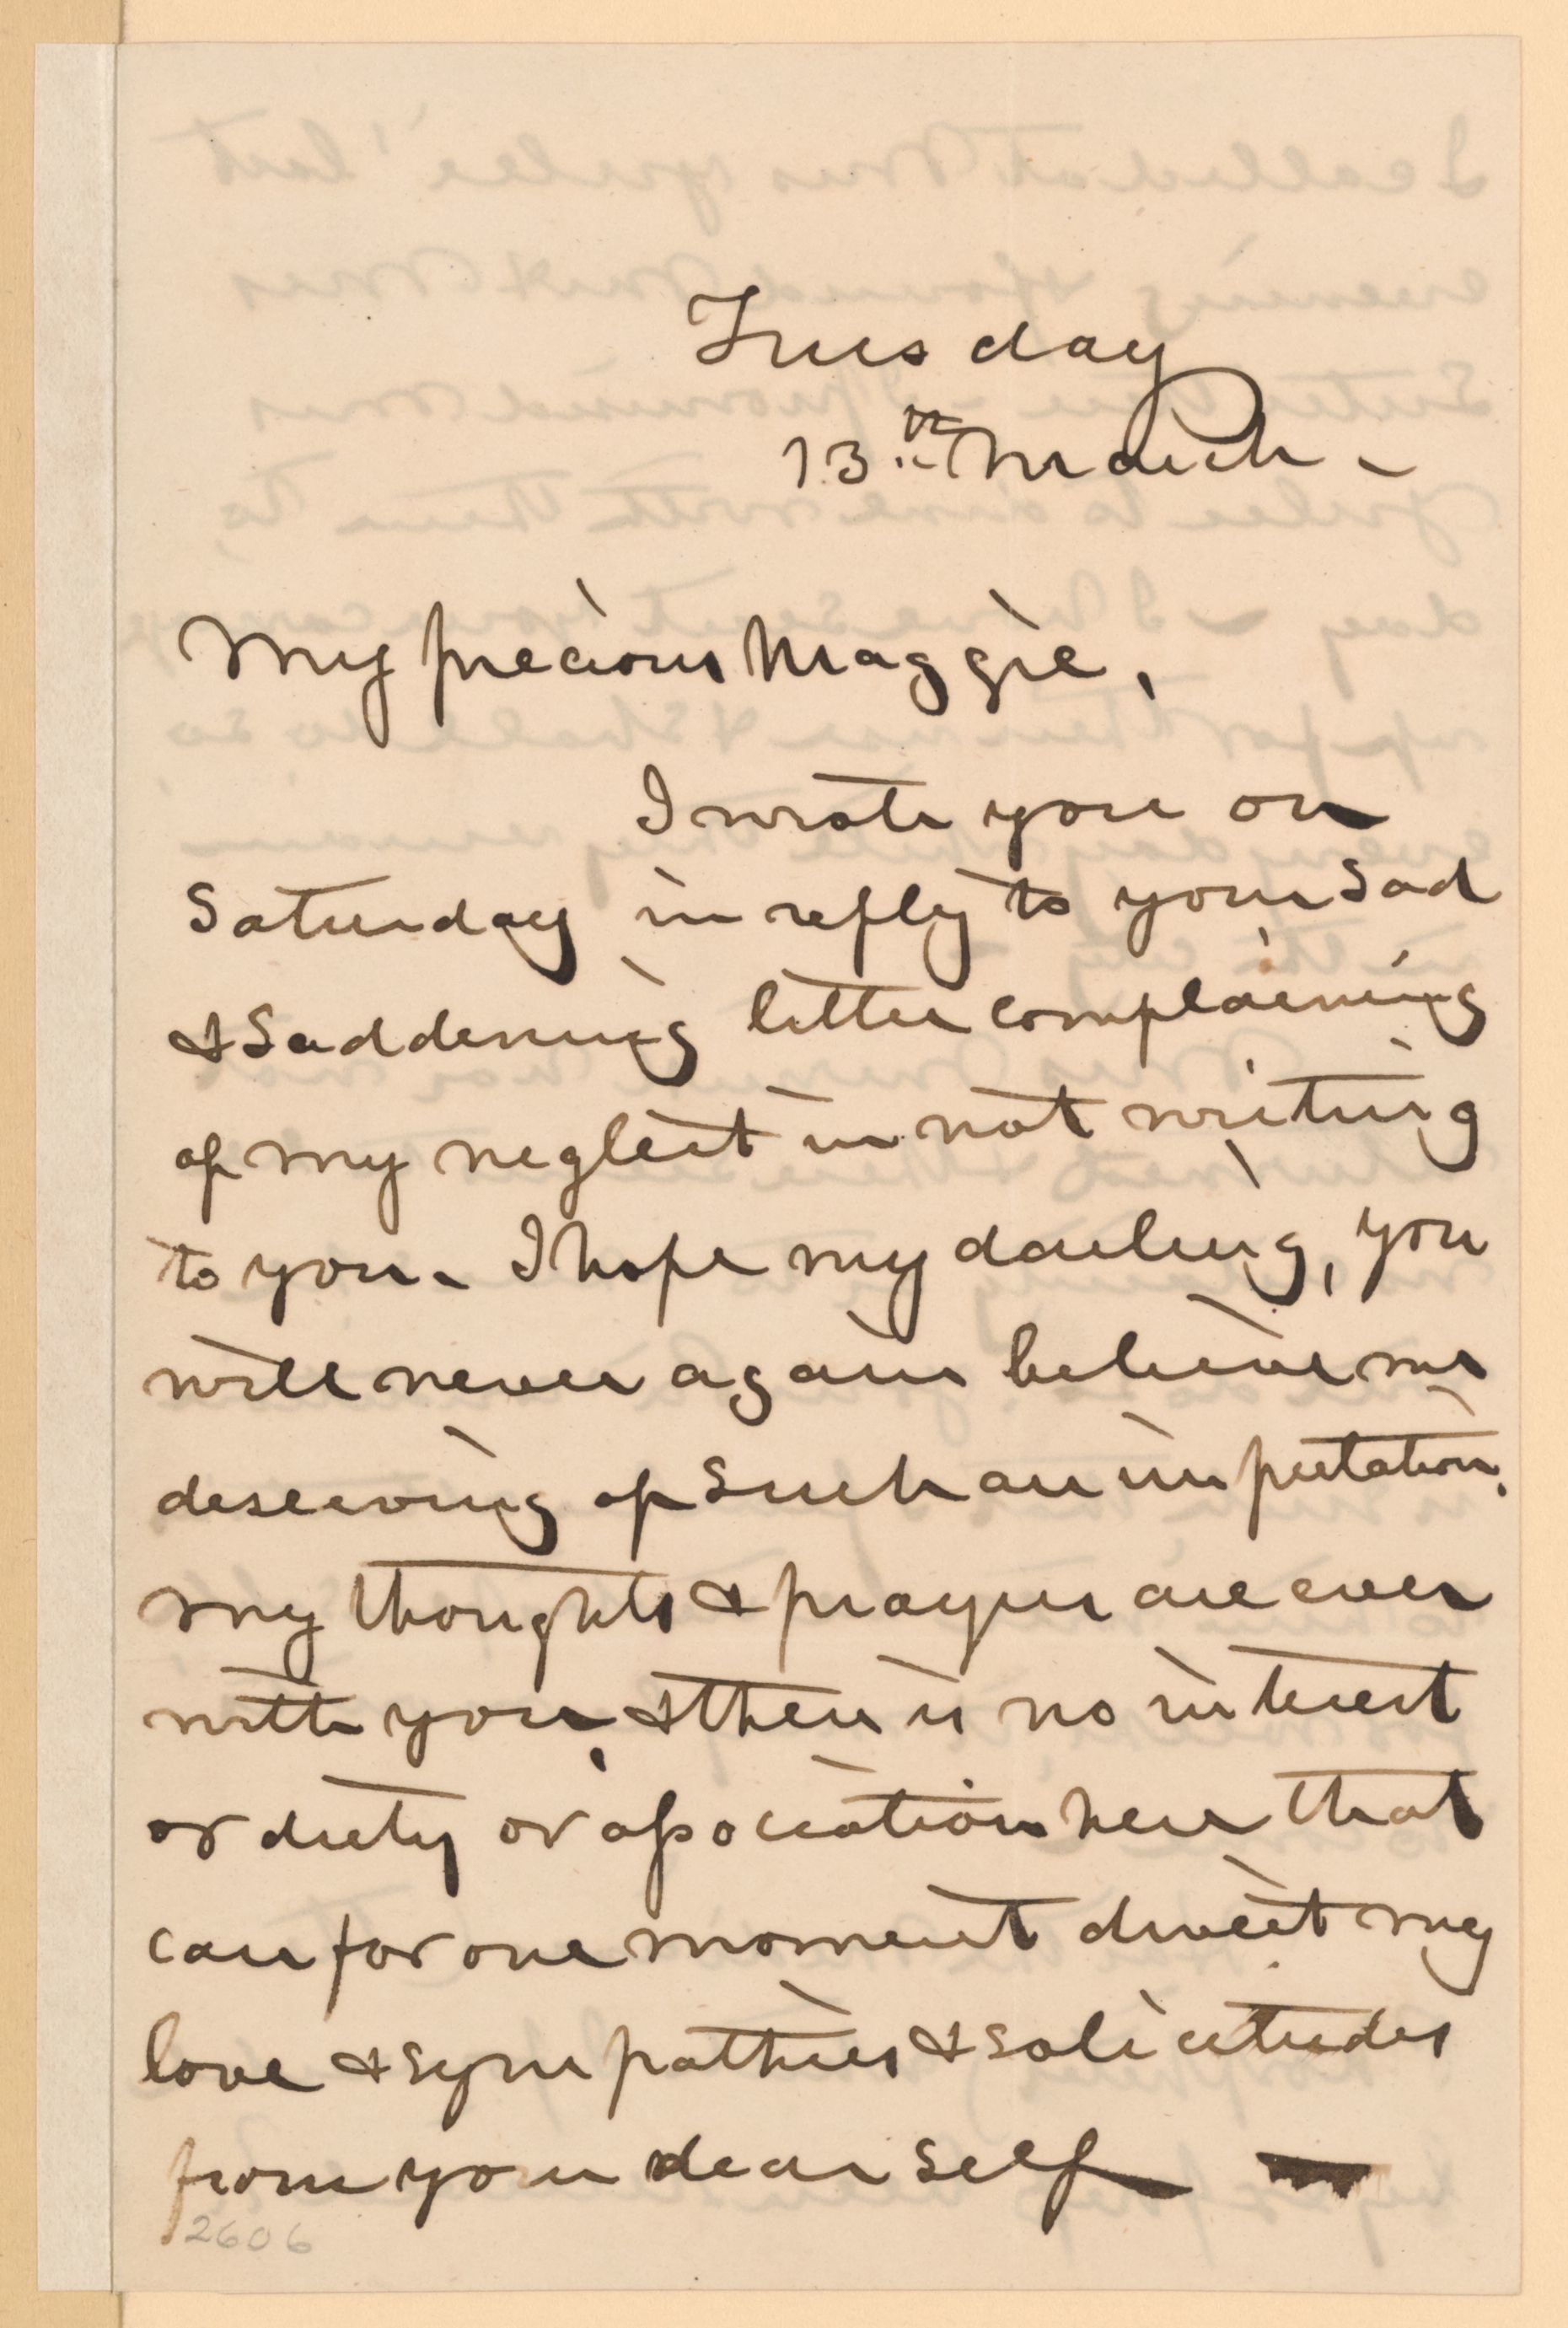 Tuesday
13th March -
My precious Maggie,
I wrote you on
Saturday in reply to your sad
& saddening letter complaining
of my neglect in not writing
to you - I hope my darling, you
will never again believe me
deserving of such an imputation.
My thoughts & prayers are ever
with you, & there is no interest
or duty or association here that
can for one moment divert my
love & sympathies & solicitudes
from your dear self —
2606